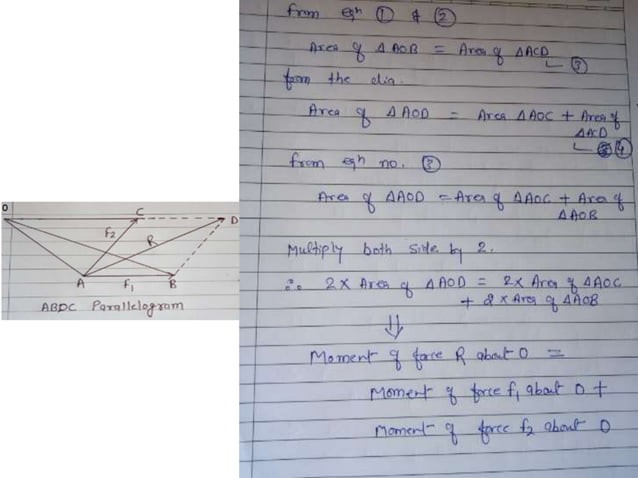 O
C
D
F2
R
A
F1
B
ABDC Parallelogram
from eqn ① & ②
Area of ΔAOB = Area of ΔACD
③
from the dia.
Area of ΔAOD = Area ΔAOC + Area of
ΔACD
④
from eqn no. ③
Area of ΔAOD = Area of ΔAOC + Area of
ΔAOB
Multiply both side by 2.
∴ 2 x Area of ΔAOD = 2x Area of ΔAOC
+ 2 x Area of ΔAOB
⇓
Moment of force R about O =
Moment of force f1 about O +
Moment of force f2 about O